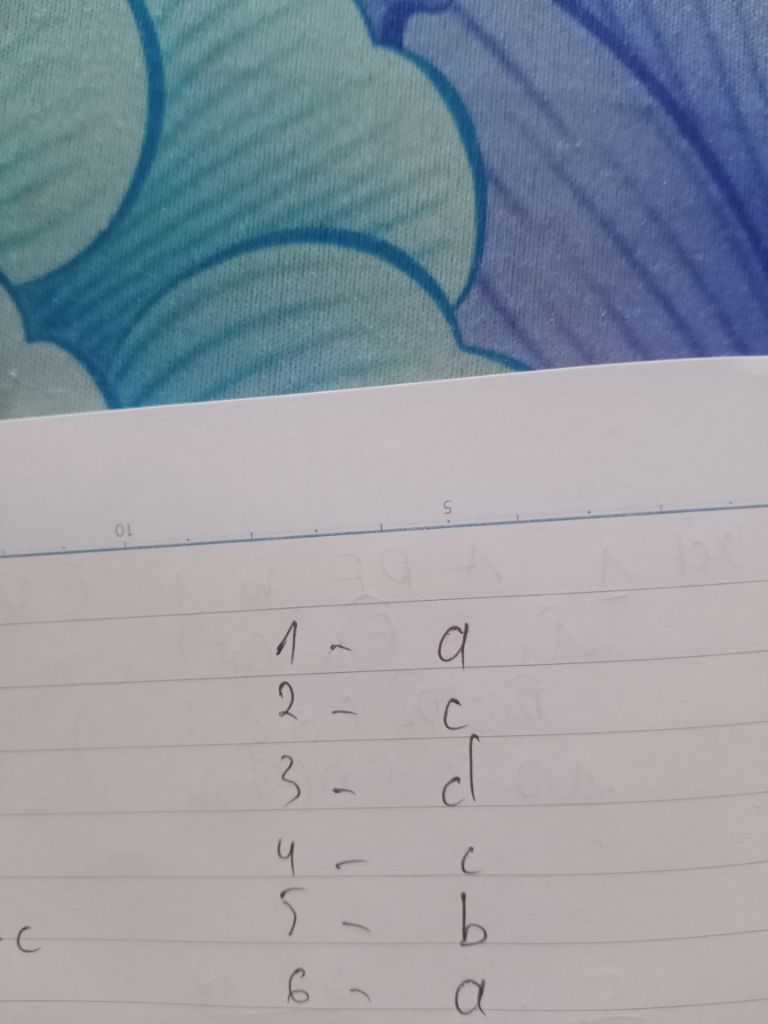 10 5
1 - a
2 - c
3 - d
4 - c
5 - b
- c
6 - a